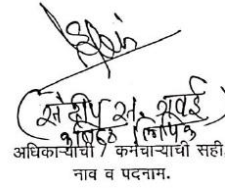 (संदीप रा. गवई)
कनिष्ठ लिपिक
अधिकाऱ्याची / कर्मचाऱ्याची सही,
नाव व पदनाम.